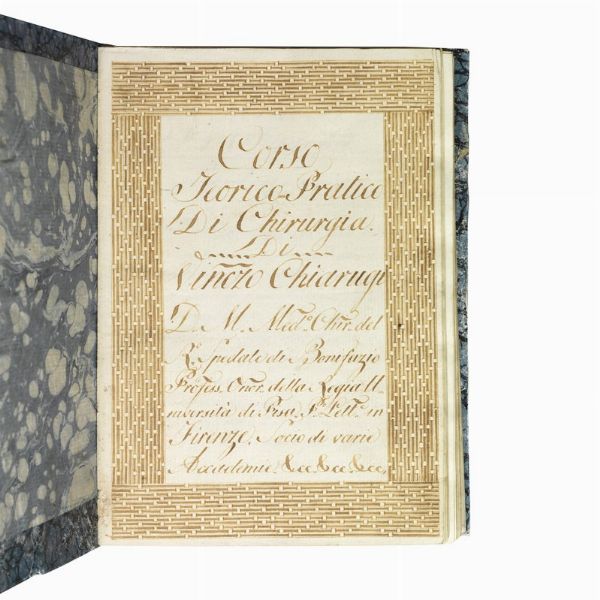 Corso
Teorico-Pratico
Di Chirurgia.
Di
Vinczo Chiarugi
D. M. Medo. Chir. del
Ro. Spedale di Bonifazio
Profess. Onor. della Regia U-
niversità di Pisa, Po. Letto. in
Firenze, Socio di varie
Accademie &cc. &cc. &cc.